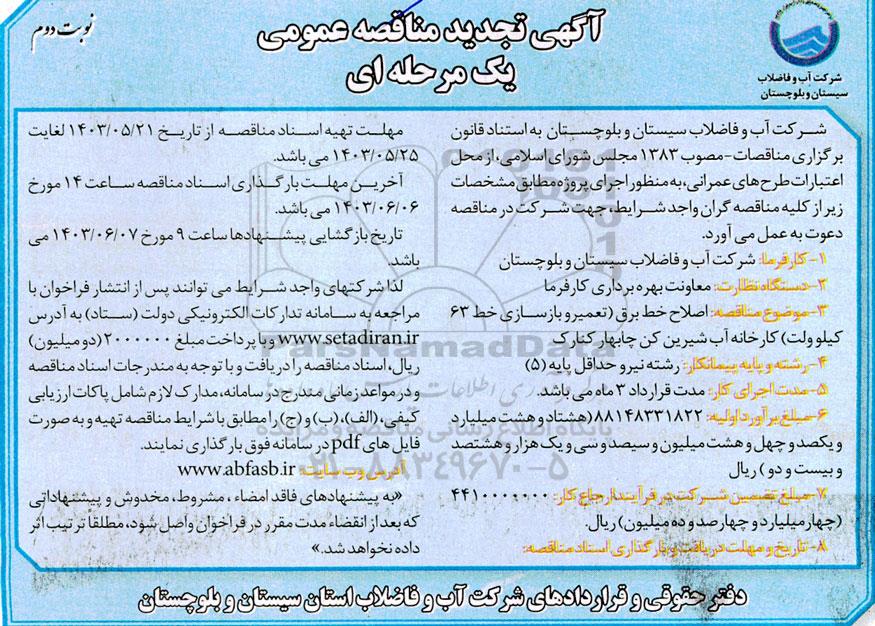 آگهی تجدید مناقصه عمومی
یک مرحله ای
نوبت دوم
شرکت آب و فاضلاب
سیستان و بلوچستان
شرکت آب و فاضلاب سیستان و بلوچستان به استناد قانون
برگزاری مناقصات-مصوب ۱۳۸۳ مجلس شورای اسلامی، از محل
اعتبارات طرح های عمرانی، به منظور اجرای پروژه مطابق مشخصات
زیر از کلیه مناقصه گران واجد شرایط، جهت شرکت در مناقصه
دعوت به عمل می آورد.
۱- کارفرما: شرکت آب و فاضلاب سیستان و بلوچستان
۲- دستگاه نظارت: معاونت بهره برداری کارفرما
۳- موضوع مناقصه: اصلاح خط برق (تعمیر و بازسازی خط ۶۳
کیلو ولت) کارخانه آب شیرین کن چابهار کنارک
۴- رشته و پایه پیمانکار: رشته نیرو حداقل پایه (۵)
۵- مدت اجرای کار: مدت قرارداد ۳ ماه می باشد.
۶- مبلغ برآورد اولیه: ۸۸۱۴۸۳۳۱۸۲۲ (هشتاد و هشت میلیارد
و یکصد و چهل و هشت میلیون و سیصد و سی و یک هزار و هشتصد
و بیست و دو) ریال
۷- مبلغ تضمین شرکت در فرآیند ارجاع کار: ۴۴۱۰۰۰۰۰۰۰
(چهار میلیارد و چهارصد و ده میلیون) ریال.
۸- تاریخ و مهلت دریافت و بارگذاری اسناد مناقصه:
مهلت تهیه اسناد مناقصه از تاریخ ۱۴۰۳/۰۵/۲۱ لغایت
۱۴۰۳/۰۵/۲۵ می باشد.
آخرین مهلت بارگذاری اسناد مناقصه ساعت ۱۴ مورخ
۱۴۰۳/۰۶/۰۶ می باشد.
تاریخ بازگشایی پیشنهادها ساعت ۹ مورخ ۱۴۰۳/۰۶/۰۷ می
باشد.
لذا شرکتهای واجد شرایط می توانند پس از انتشار فراخوان با
مراجعه به سامانه تدارکات الکترونیکی دولت (ستاد) به آدرس
www.setadiran.ir و با پرداخت مبلغ ۲۰۰۰۰۰۰ (دو میلیون)
ریال، اسناد مناقصه را دریافت و با توجه به مندرجات اسناد مناقصه
و در مواعد زمانی مندرج در سامانه، مدارک لازم شامل پاکات ارزیابی
کیفی، (الف)، (ب) و (ج) را مطابق با شرایط مناقصه تهیه و به صورت
فایل های pdf در سامانه فوق بارگذاری نمایند.
آدرس وب سایت: www.abfasb.ir
«به پیشنهادهای فاقد امضاء، مشروط، مخدوش و پیشنهاداتی
که بعد از انقضاء مدت مقرر در فراخوان واصل شود، مطلقاً ترتیب اثر
داده نخواهد شد.»
دفتر حقوقی و قراردادهای شرکت آب و فاضلاب استان سیستان و بلوچستان
ParsNamadData
۰۲۱-۸۸۳۴۹۶۷۰-۵